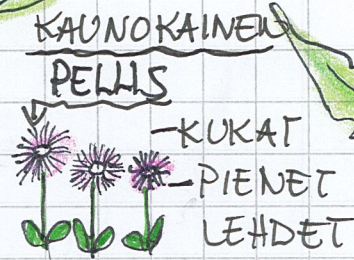 KAUNOKAINEN
PELLIS
-KUKAT
-PIENET
LEHDET